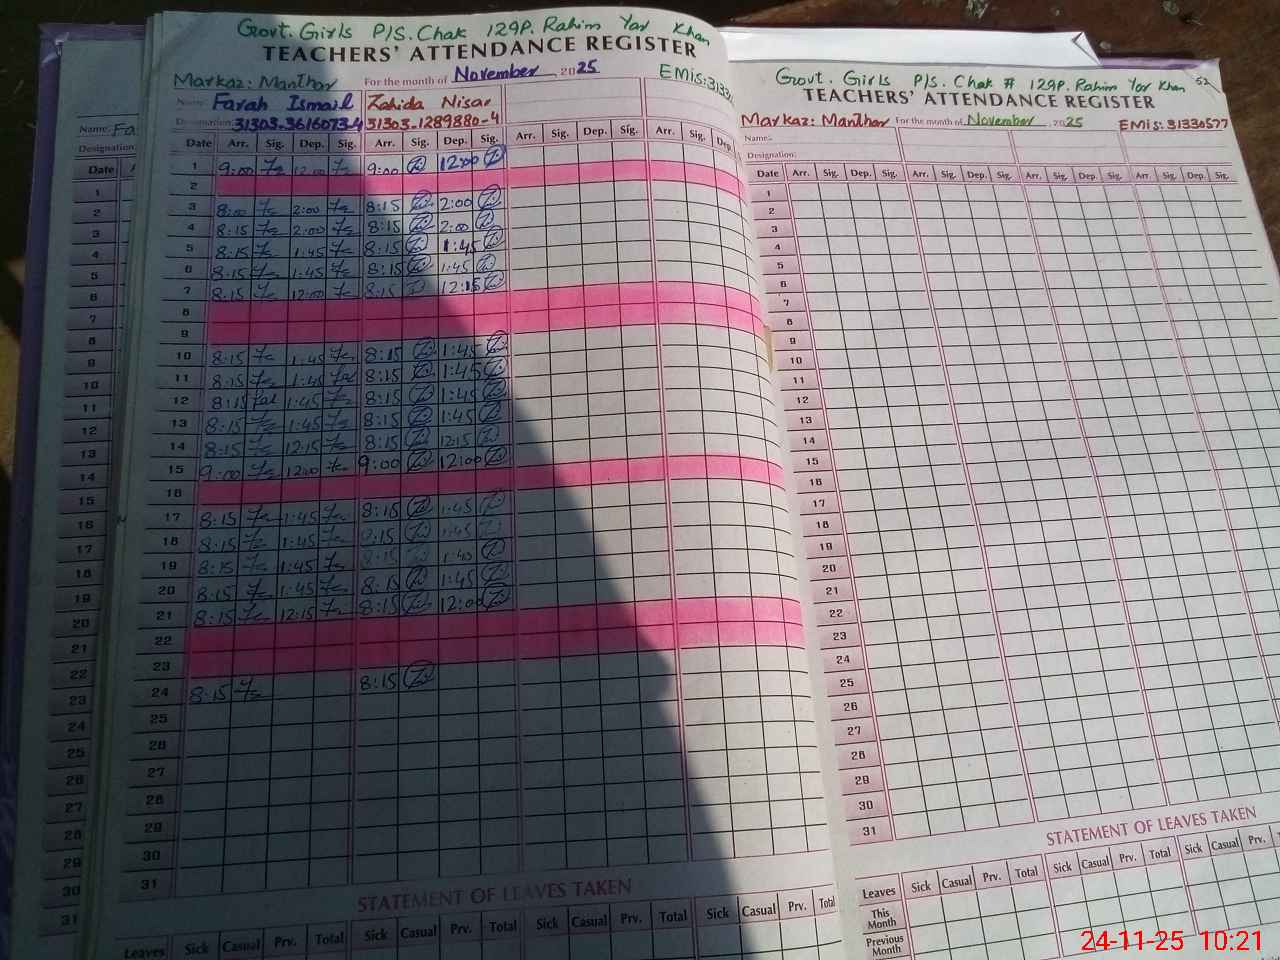 Govt. Girls P/S. Chak 129P. Rahim Yar Khan
TEACHERS' ATTENDANCE REGISTER
Markaz: Manthar For the month of November 2025 EMis:3133
Name: Farah Ismail Zahida Nisar
Designation: 31303-3616073-4 31303-1289880-4
Date Arr. Sig. Dep. Sig. Arr. Sig. Dep. Sig. Arr. Sig. Dep. Sig. Arr. Sig. Dep.
1 9:00 12:00 9:00 12:00
2
3 8:00 2:00 8:15 2:00
4 8:15 2:00 8:15 2:00
5 8:15 1:45 8:15 1:45
6 8:15 1:45 8:15 1:45
7 8:15 12:00 8:15 12:15
8
9
10 8:15 1:45 8:15 1:45
11 8:15 1:45 8:15 1:45
12 8:15 1:45 8:15 1:45
13 8:15 1:45 8:15 1:45
14 8:15 12:15 8:15 12:15
15 9:00 12:00 9:00 12:00
16
17 8:15 1:45 8:15 1:45
18 8:15 1:45 8:15 1:45
19 8:15 1:45 8:15 1:40
20 8:15 1:45 8:15 1:45
21 8:15 12:15 8:15 12:00
22
23
24 8:15 8:15
25
26
27
28
29
30
31
STATEMENT OF LEAVES TAKEN
Leaves Sick Casual Prv. Total Sick Casual Prv. Total Sick Casual Prv. Total
Govt. Girls P/S. Chak # 129P. Rahim Yar Khan 52
TEACHERS' ATTENDANCE REGISTER
Markaz: Manthar For the month of November 2025 EMis: 31330577
Name:
Designation:
Date Arr. Sig. Dep. Sig. Arr. Sig. Dep. Sig. Arr. Sig. Dep. Sig. Arr. Sig. Dep. Sig.
1
2
3
4
5
6
7
8
9
10
11
12
13
14
15
16
17
18
19
20
21
22
23
24
25
26
27
28
29
30
31
STATEMENT OF LEAVES TAKEN
Leaves Sick Casual Prv. Total Sick Casual Prv. Total Sick Casual Prv.
This Month
Previous Month
Name: Fa
Designation:
Date
1
2
3
4
5
6
7
8
9
10
11
12
13
14
15
16
17
18
19
20
21
22
23
24
25
26
27
28
29
30
31
24-11-25 10:21